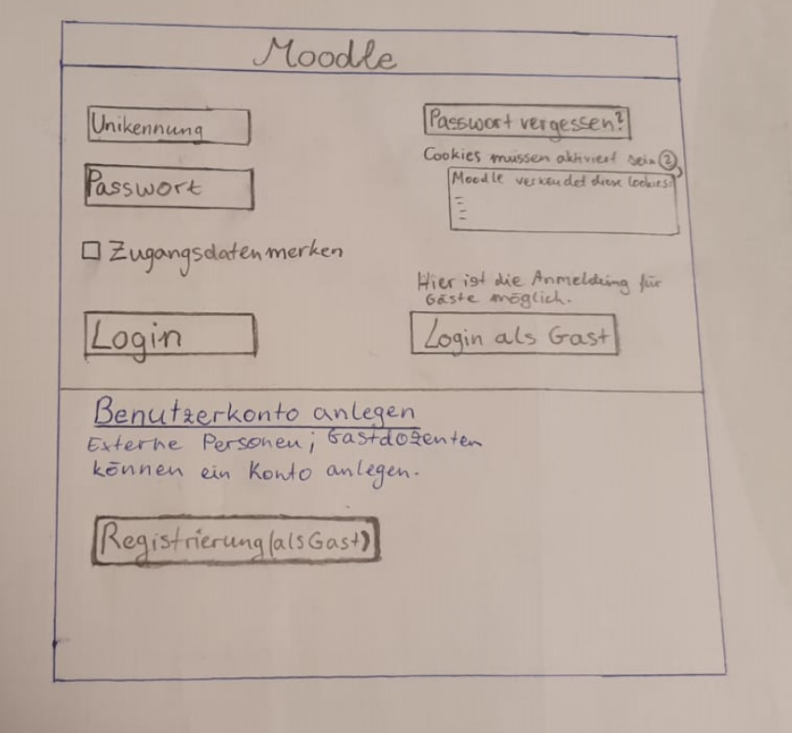 Moodle
Unikennung
Passwort
Zugangsdaten merken
Login
Passwort vergessen?
Cookies müssen aktiviert sein ?
Moodle verwendet diese Cookies:
Hier ist die Anmeldung für
Gäste möglich.
Login als Gast
Benutzerkonto anlegen
Externe Personen; Gastdozenten
können ein Konto anlegen.
Registrierung (als Gast)